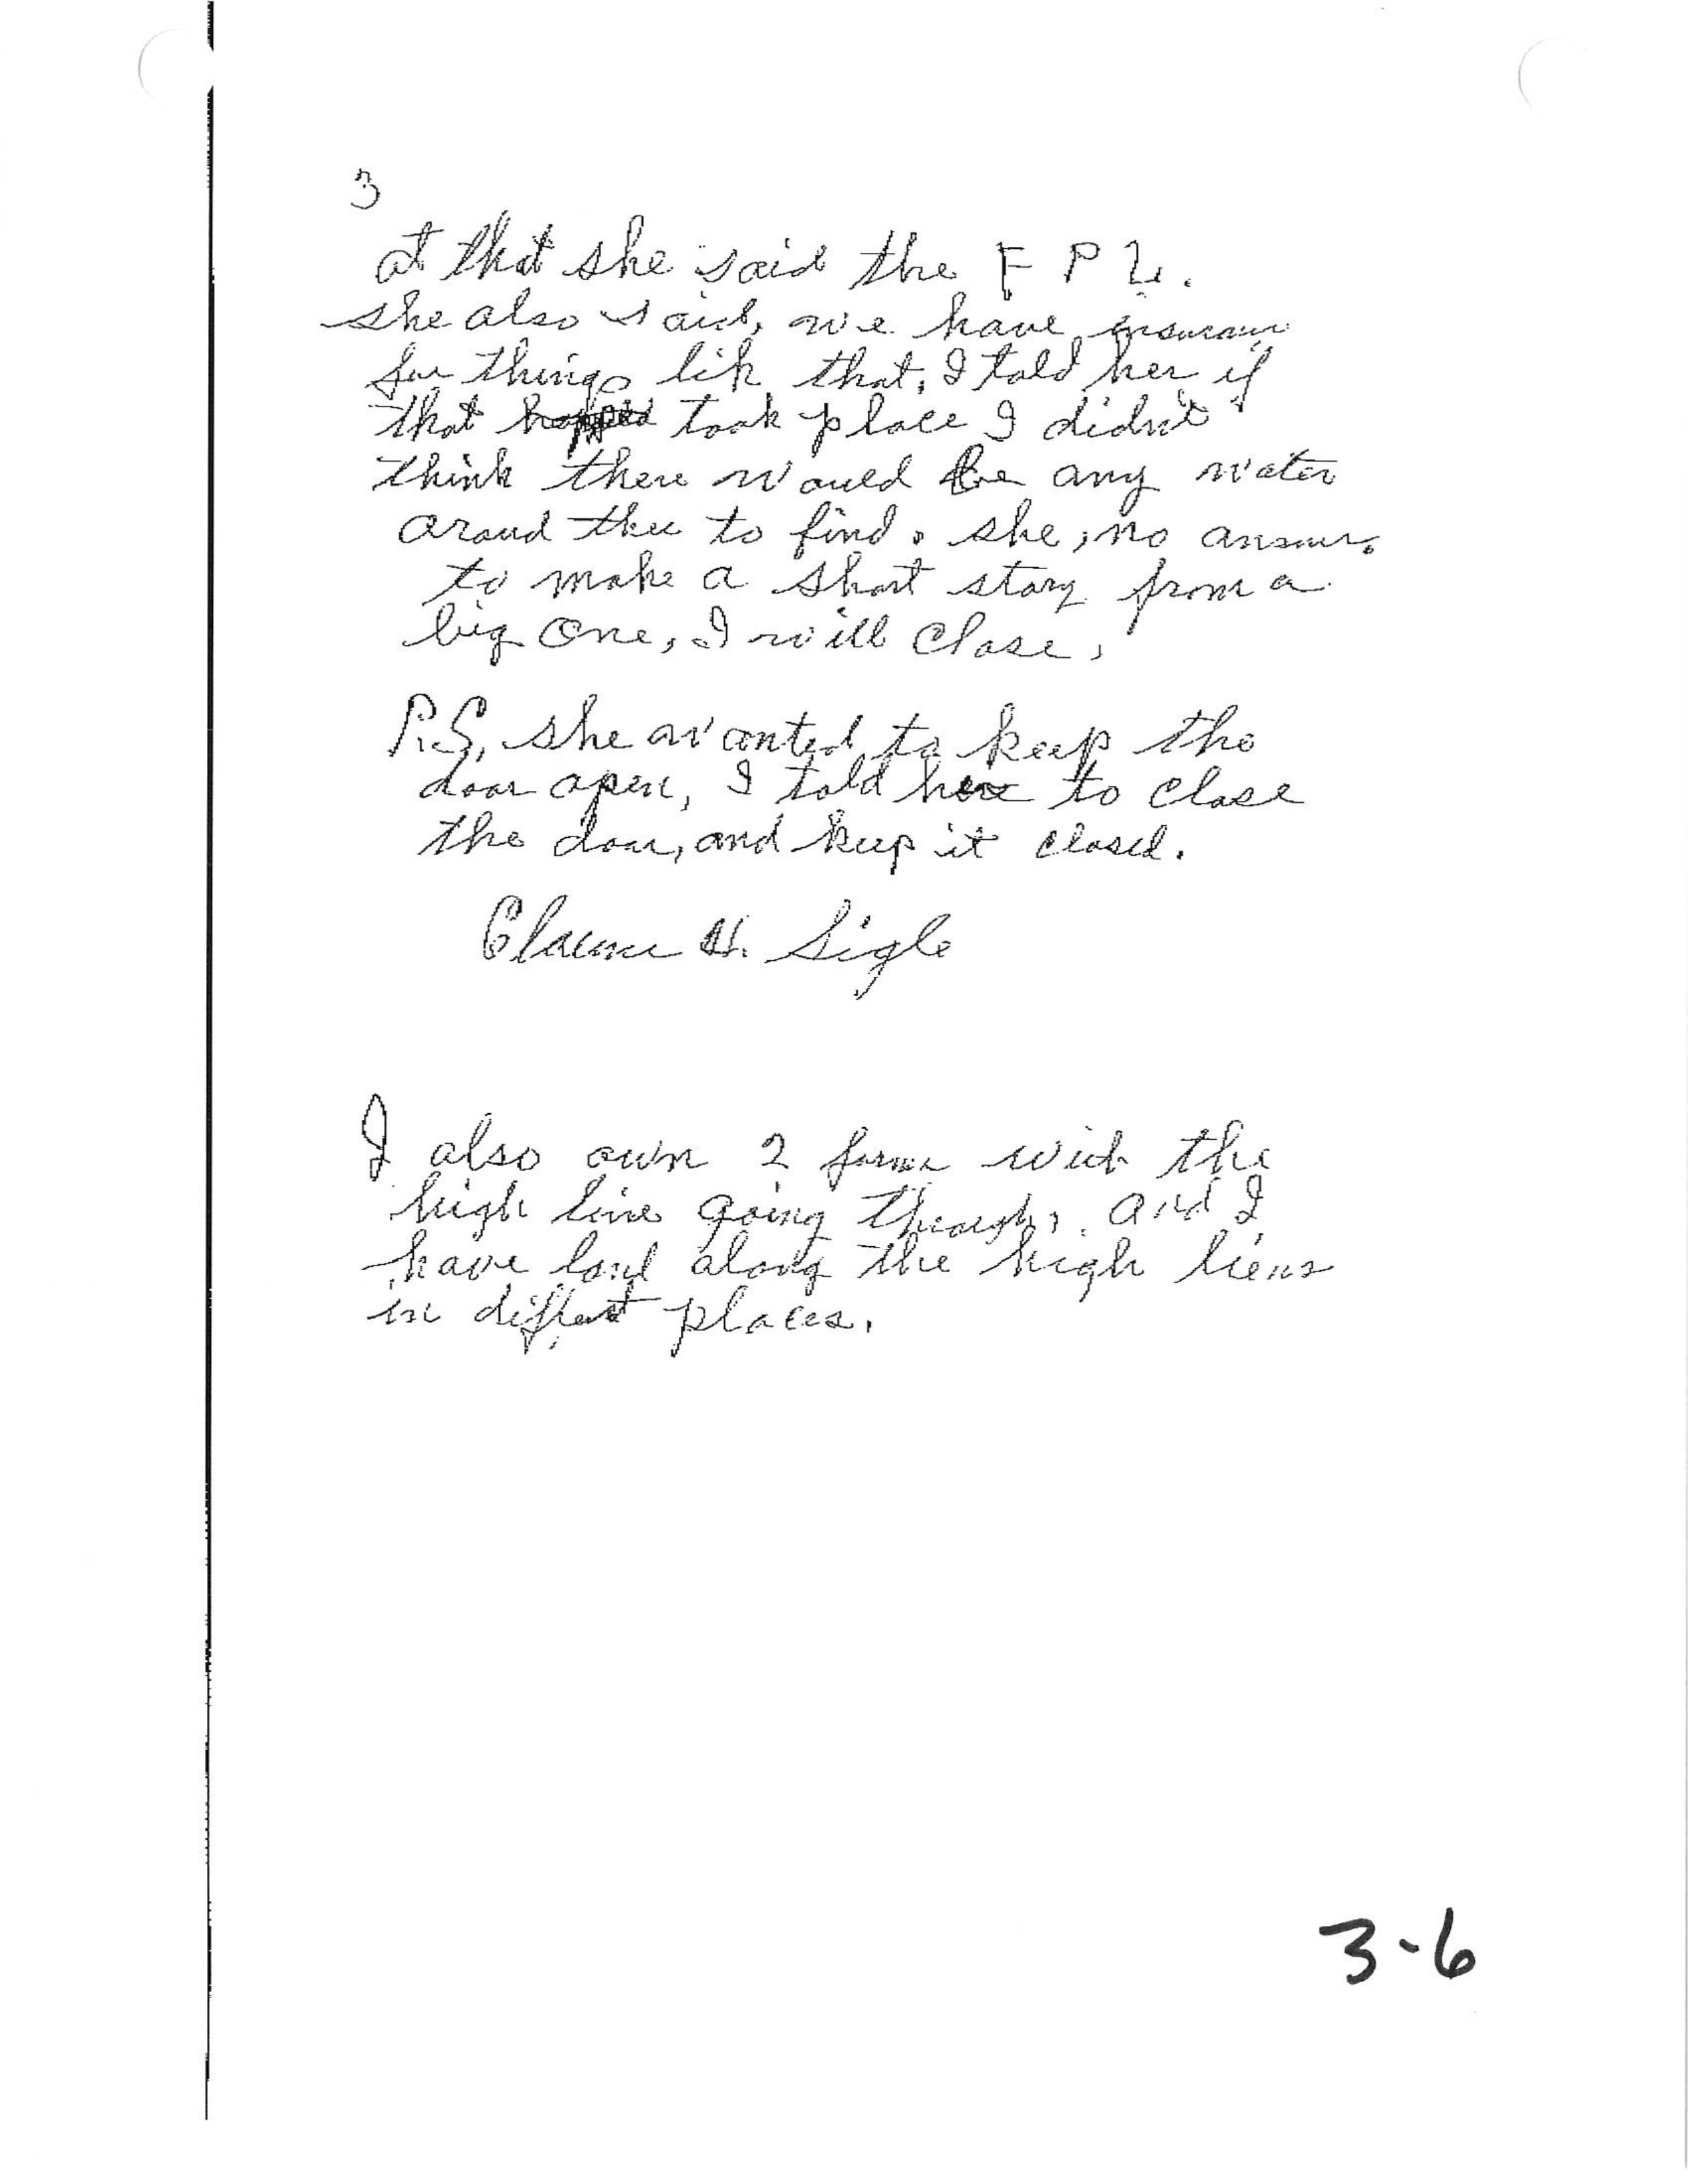 3
at that she said the F P L.
she also said, we have insuranc
for things lik that, I told her if
that took place I didn't
think there would be any water
aroud thee to find. she, no answer.
to make a short story from a
big one, I will close,
P.S, she wanted to keep the
door open, I told her to close
the door, and keep it closed.
H. Sigle
I also own 2 farms with the
high line going through, and I
have land along the high liens
in diffent places.
3-6